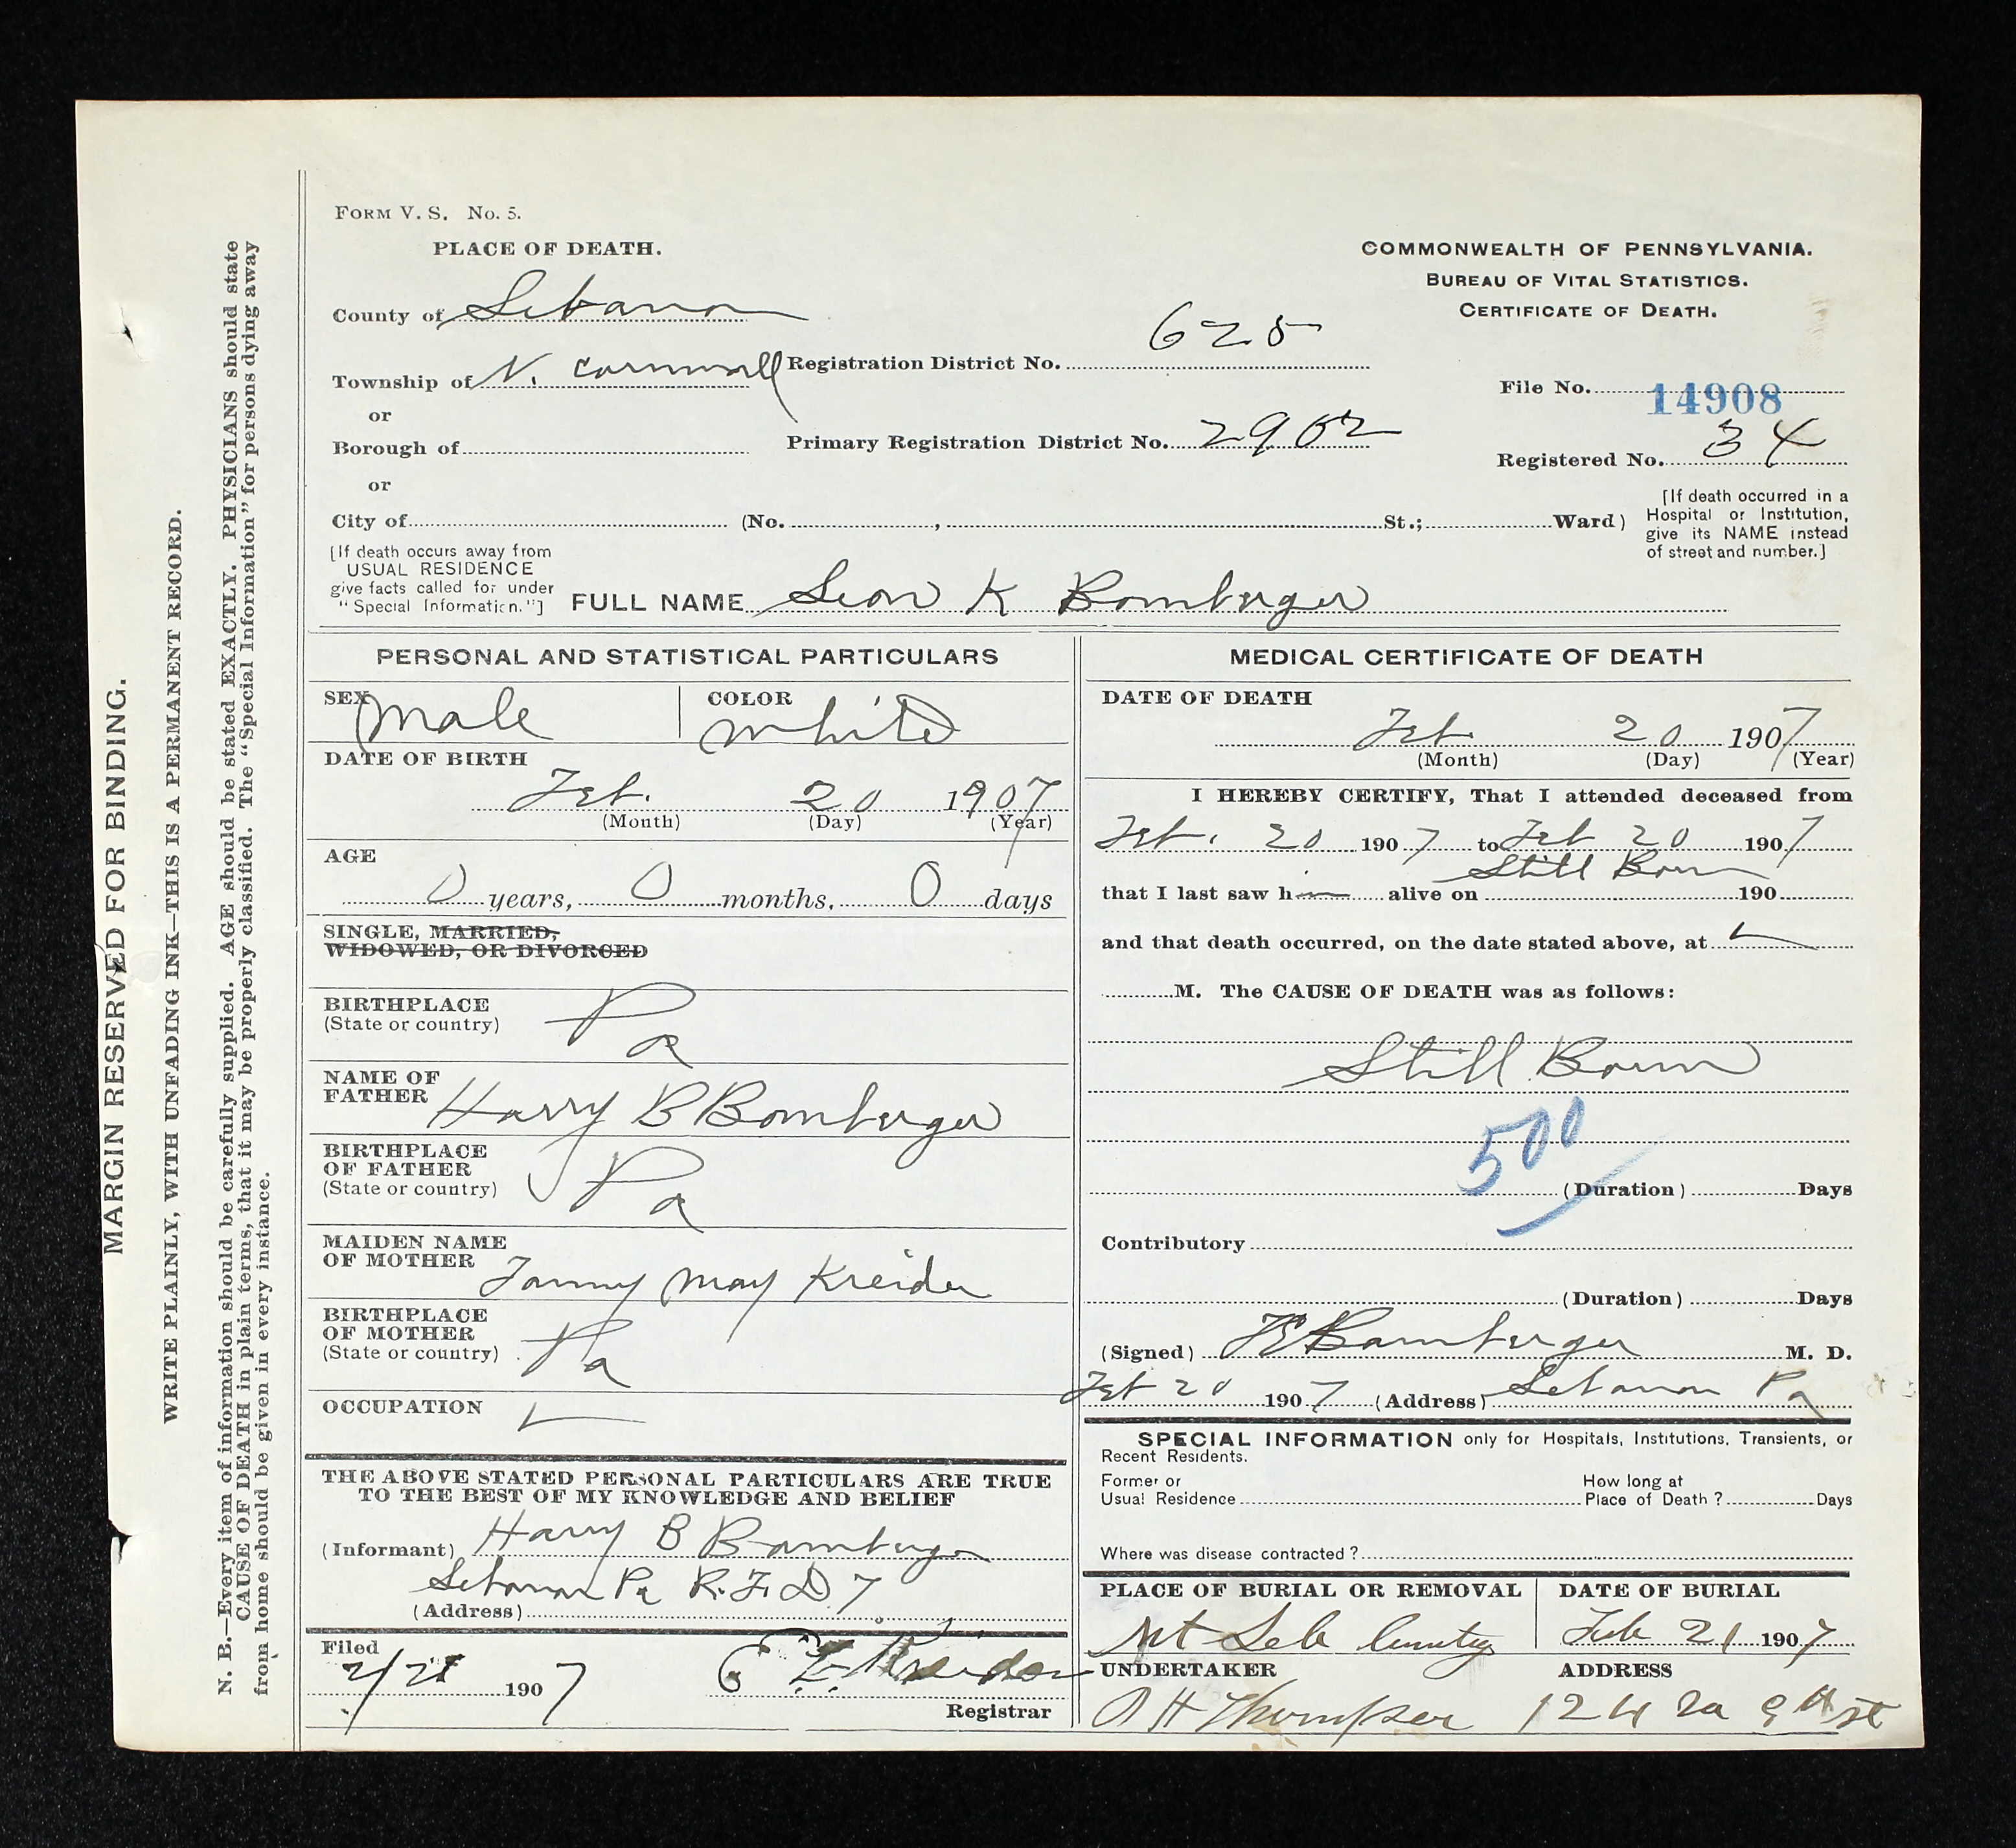 FORM V. S. No. 5.
PLACE OF DEATH.
COMMONWEALTH OF PENNSYLVANIA.
BUREAU OF VITAL STATISTICS.
CERTIFICATE OF DEATH.
County of Lebanon
Township of N. Cornwall
Registration District No. 625
or
File No. 14908
Borough of
Primary Registration District No. 2902
Registered No. 34
or
City of (No. , St.; Ward)
[If death occurred in a
Hospital or Institution,
give its NAME instead
of street and number.]
[If death occurs away from
USUAL RESIDENCE
give facts called for under
"Special Information."]
FULL NAME Leon K Bomberger
PERSONAL AND STATISTICAL PARTICULARS
SEX Male
COLOR White
DATE OF BIRTH
Feb. 20 1907
(Month) (Day) (Year)
AGE
0 years, 0 months, 0 days
SINGLE, MARRIED,
WIDOWED, OR DIVORCED
BIRTHPLACE
(State or country) Pa
NAME OF
FATHER Harry B Bomberger
BIRTHPLACE
OF FATHER
(State or country) Pa
MAIDEN NAME
OF MOTHER Fanny May Kreider
BIRTHPLACE
OF MOTHER
(State or country) Pa
OCCUPATION
THE ABOVE STATED PERSONAL PARTICULARS ARE TRUE
TO THE BEST OF MY KNOWLEDGE AND BELIEF
(Informant) Harry B Bomberger
Lebanon Pa R.F.D. 7
(Address)
Filed
2/21 1907 E Kreider
Registrar
MEDICAL CERTIFICATE OF DEATH
DATE OF DEATH
Feb 20 1907
(Month) (Day) (Year)
I HEREBY CERTIFY, That I attended deceased from
Feb. 20 1907 to Feb 20 1907
Still Born
that I last saw him alive on 190
and that death occurred, on the date stated above, at
M. The CAUSE OF DEATH was as follows:
Still Born
500
(Duration) Days
Contributory
(Duration) Days
(Signed) Bomberger M. D.
Feb 20 1907 (Address) Lebanon Pa
SPECIAL INFORMATION only for Hospitals, Institutions, Transients, or
Recent Residents.
Former or
Usual Residence
How long at
Place of Death ? Days
Where was disease contracted ?
PLACE OF BURIAL OR REMOVAL
Mt Leb Cemetery
DATE OF BURIAL
Feb 21 1907
UNDERTAKER
H Thompson
ADDRESS
124 9th st
MARGIN RESERVED FOR BINDING.
WRITE PLAINLY, WITH UNFADING INK—THIS IS A PERMANENT RECORD.
N. B.—Every item of information should be carefully supplied. AGE should be stated EXACTLY. PHYSICIANS should state
CAUSE OF DEATH in plain terms, that it may be properly classified. The "Special Information" for persons dying away
from home should be given in every instance.